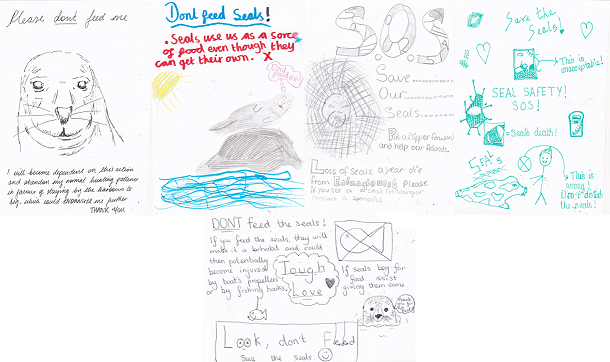 Please don't feed me
I will become dependent on this action
and abandon my normal hunting patterns
in favour of staying by the harbour to
beg, which could endanger me further
THANK YOU
Dont feed Seals!
• Seals use us as a sorce
of food even though they
can get their own. X
S.O.S
Save
Our
Seals
Put a flipper forward
and help our friends.
Lots of seals a year die
from Entanglement. Please
Save the
Seals!
This is
unacceptable!
SEAL SAFETY!
SOS!
=Seals death!
This is
wrong!
Don't disturb
the seals!
DONT feed the seals!
If you feed the seals, they will
make it a habitat and could
then potentially
become injured
by boat's propellers
or by fishing hooks.
Tough
Love
If seals beg for
food resist
giving them some.
Look, don't Feed
Save the seals